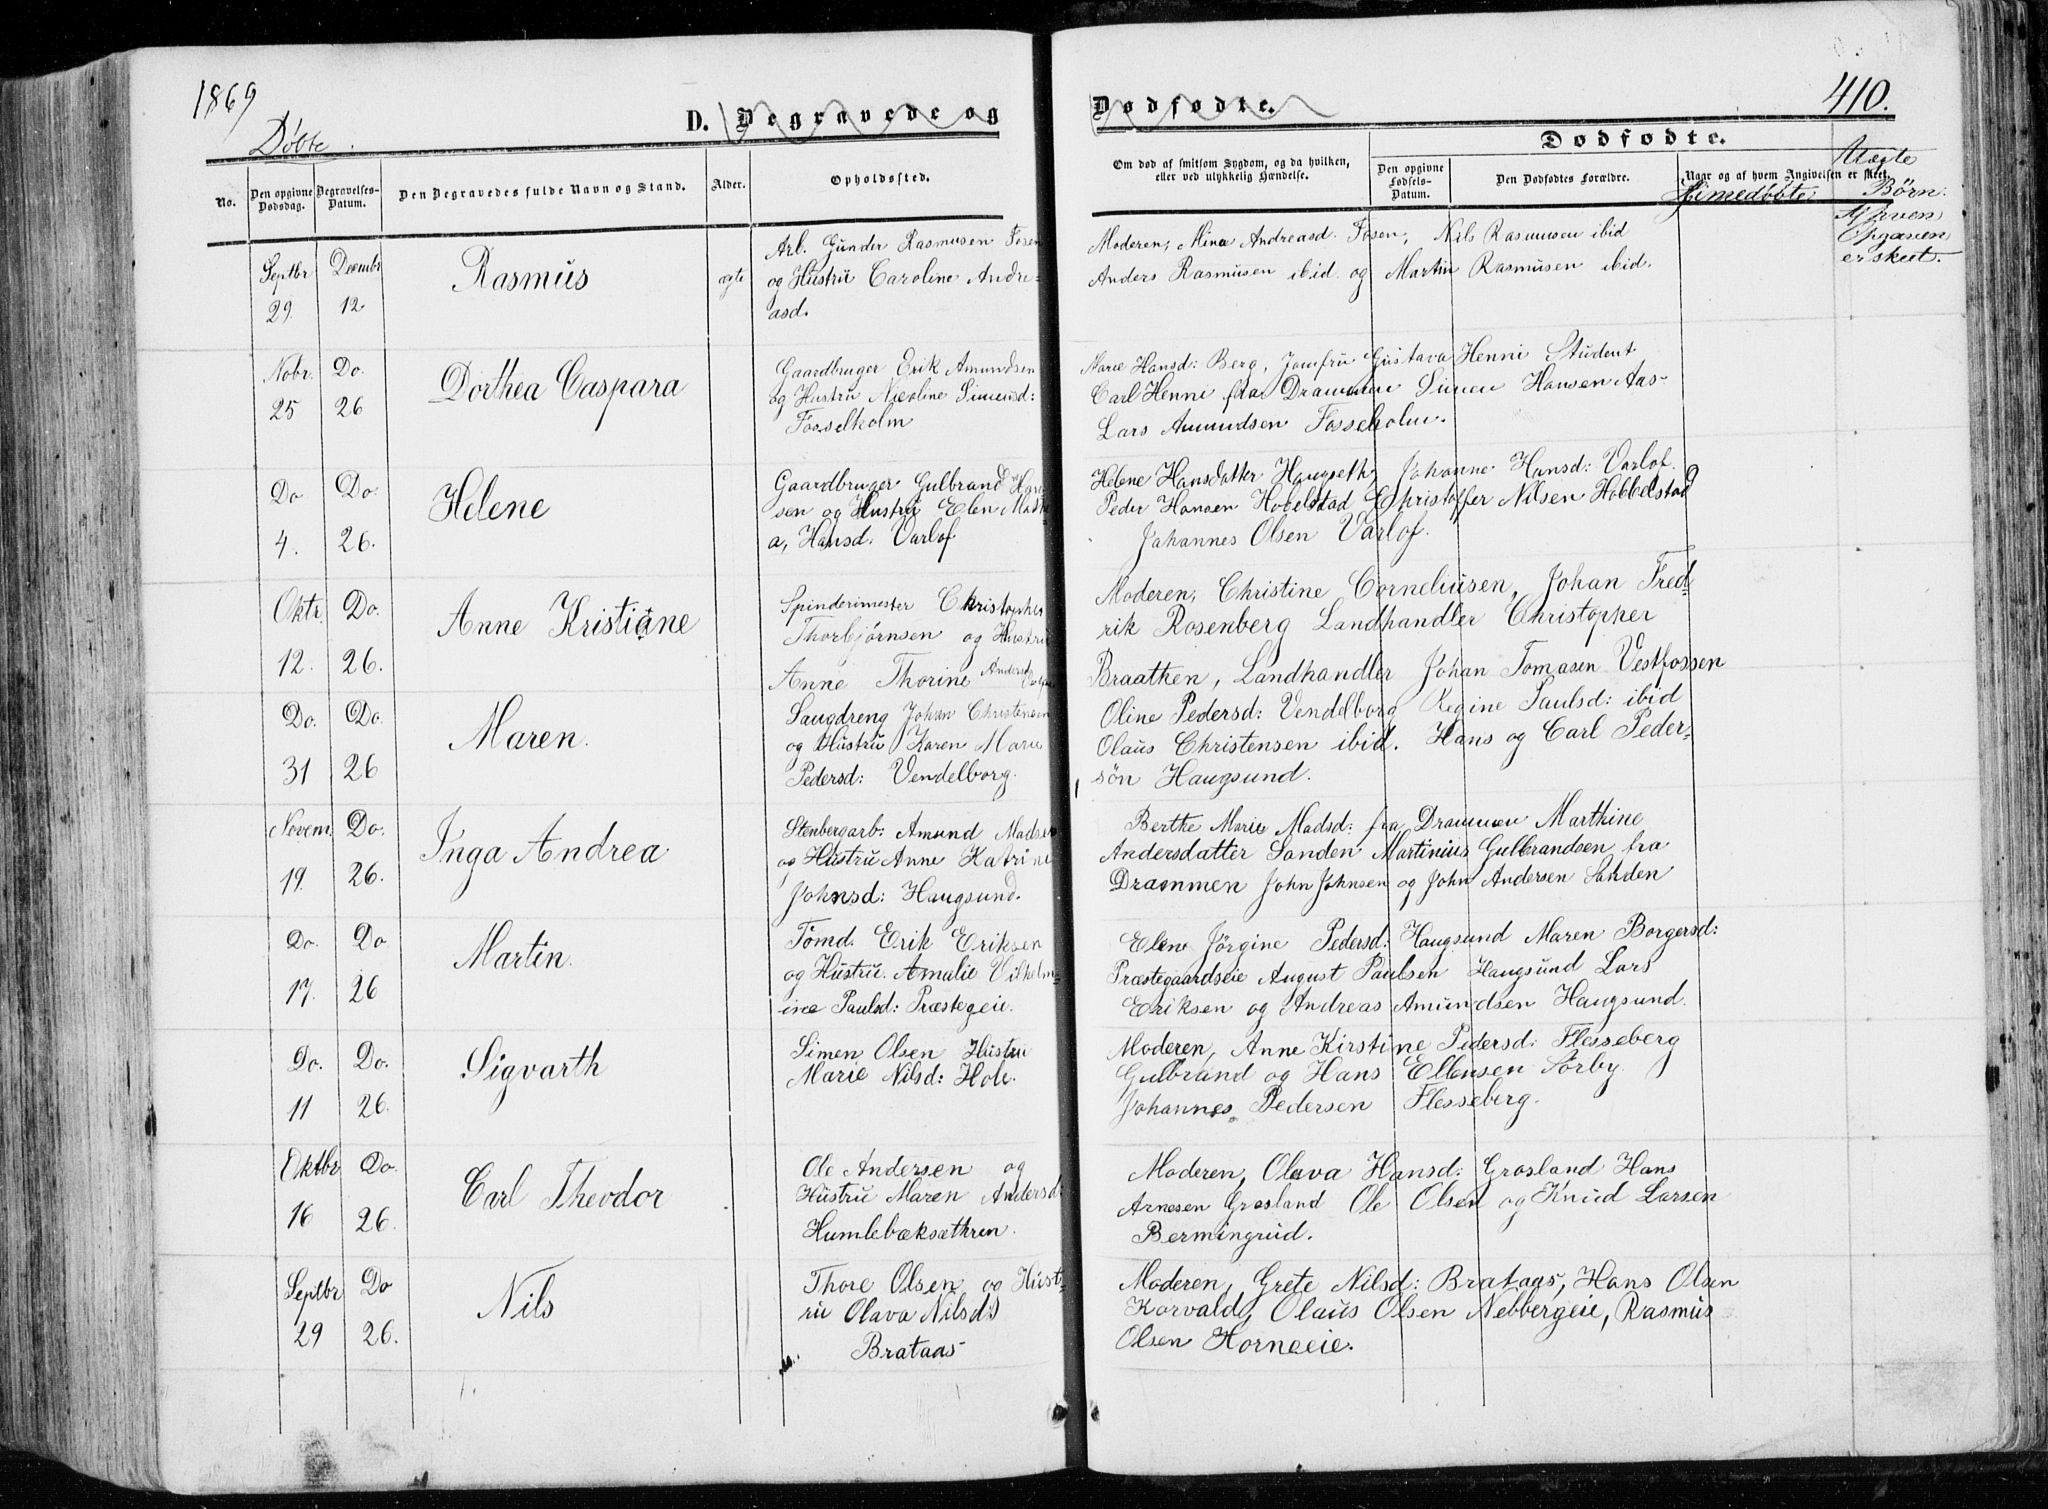 1869
Døbte.
D. Begravede og
No.
Den opgivne Dødsdag.
Begravelses-Datum.
Den Begravedes fulde Navn og Stand.
Alder.
Opholdssted.
Septbr 29.
Decembr 12
Rasmus
ægte
Arb. Gunder Rasmusen Fosen
og Hustru Caroline Andre-
asd.
Nobr. 25
Do. 26
Dorthea Caspara
Gaardbruger Erik Amundsen
og Hustru Nicoline Simensd:
Fosselholm
Do 4.
Do. 26.
Helene
Gaardbruger Gulbrand Han
sen og Hustru Elen
a, Hansd: Varlof
Oktr. 12.
Do. 26.
Anne Kristiane
Spinderimester Christopher
Thorbjørnsen og Hustru
Anne Thorine Andersd
Do. 31
Do. 26
Maren.
Saugdreng Johan Christensen
og Hustru Karen Marie
Pedersd: Vendelborg.
Novem. 19.
Do. 26.
Inga Andrea
Stenbergarb: Amund Madsen
og Hustru Anne Katrine
Johnsd: Haugsund.
Do. 17.
Do 26
Martin.
Tømd. Erik Eriksen
og Hustru. Amalie Vilhelm-
ine Paulsd: Præstegeie.
Do. 11
Do. 26.
Sigvarth
Simen Olsen Hustru
Marie Nilsd: Hole.
Oktbr 16
Do. 26.
Carl Theodor
Ole Andersen og
Hustru Maren Andersd:
Humlebæksæthren.
Septbr 29
Do 26.
Nils
Thore Olsen og Hust-
ru Olava Nilsd:
Brataas
Dødfødte.
410.
Om død af smitsom Sygdom, og da hvilken, eller ved ulykkelig Hændelse.
Dødfødte.
Den opgivne Fødsels-Datum.
Den Dødfødtes Forældre.
Naar og af hvem Angivelsen er skeet.
Hjemedøbte
Uægte
Børn.
Af hvem
Opgaven
er skeet.
Moderen, Mina Andreasd. Fosen, Nils Rasmusen ibid
Anders Rasmusen ibid. og Martin Rasmusen ibid.
Marie Hansd: Berg, Jomfru Gustava Henni Student
Carl Henni fra Drammen Simen Hansen Aas-
Lars Amundsen Fosseholm.
Helene Hansdatter Haugseth, Johanne Hansd: Varlof.
Peder Hansen Hobelstad Christoffer Nilsen Hobbelstad
Johannes Olsen Varlof.
Moderen, Christine Corneliusen, Johan Fred-
rik Rosenberg Landhandler Christopher
Braathen, Landhandler Johan Tomasen Vestfossen
Oline Pedersd: Vendelborg Regine Paulsd: ibid
Olaus Christensen ibid. Hans og Carl Peder-
sön Haugsund.
Berthe Marie Madsd: fra Drammen Marthine
Andersdatter Sanden Martinius Gulbrandsen fra
Drammen John Johnsen og John Andersen Sanden
Elene Jörgine Pedersd: Haugsund Maren Borgersd:
Præstegaardseie August Paulsen Haugsund Lars
Eriksen og Andreas Amundsen Haugsund.
Moderen, Anne Kirstine Pedersd: Flesseberg
Gulbrand og Hans Ellensen Sørby.
Johannes Pedersen Flesseberg.
Moderen, Olava Hansd: Grosland Hans
Arnesen Grosland Ole Olsen og Knud Larsen
Bermingrud.
Moderen, Grete Nilsd: Brataas, Hans Olsen
Korvald, Olaus Olsen Nebbergeie, Rasmus
Olsen Horneeie.